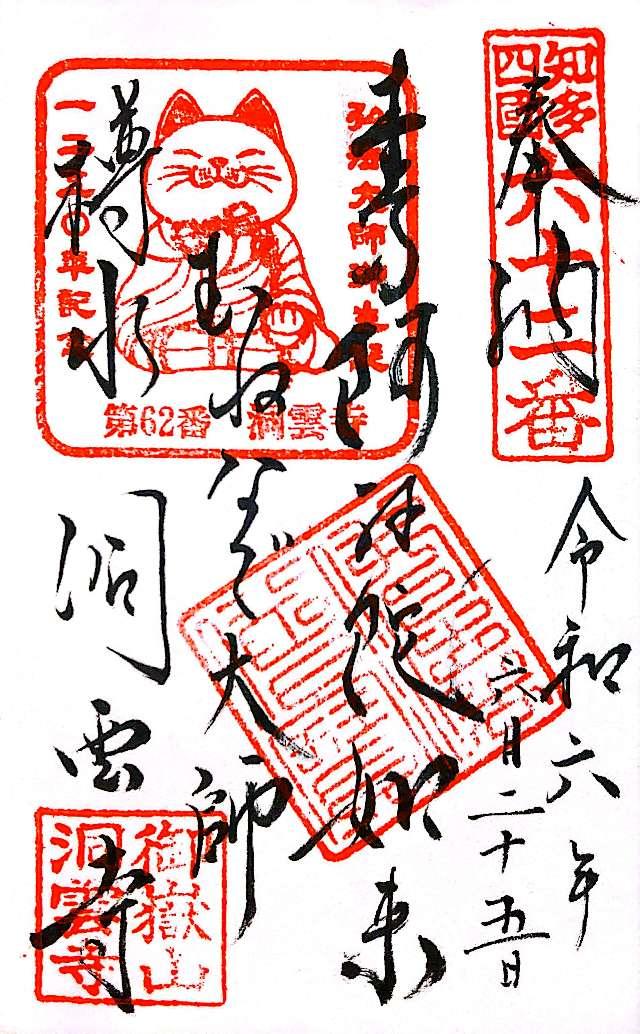 奉納
令和六年
六月二十五日
知多
四國
六十二番
本尊阿弥陀如来
まねき大師
樽水
洞雲寺
弘法大師御生誕
一二五〇年記念
第62番 洞雲寺
御嶽山
洞雲寺